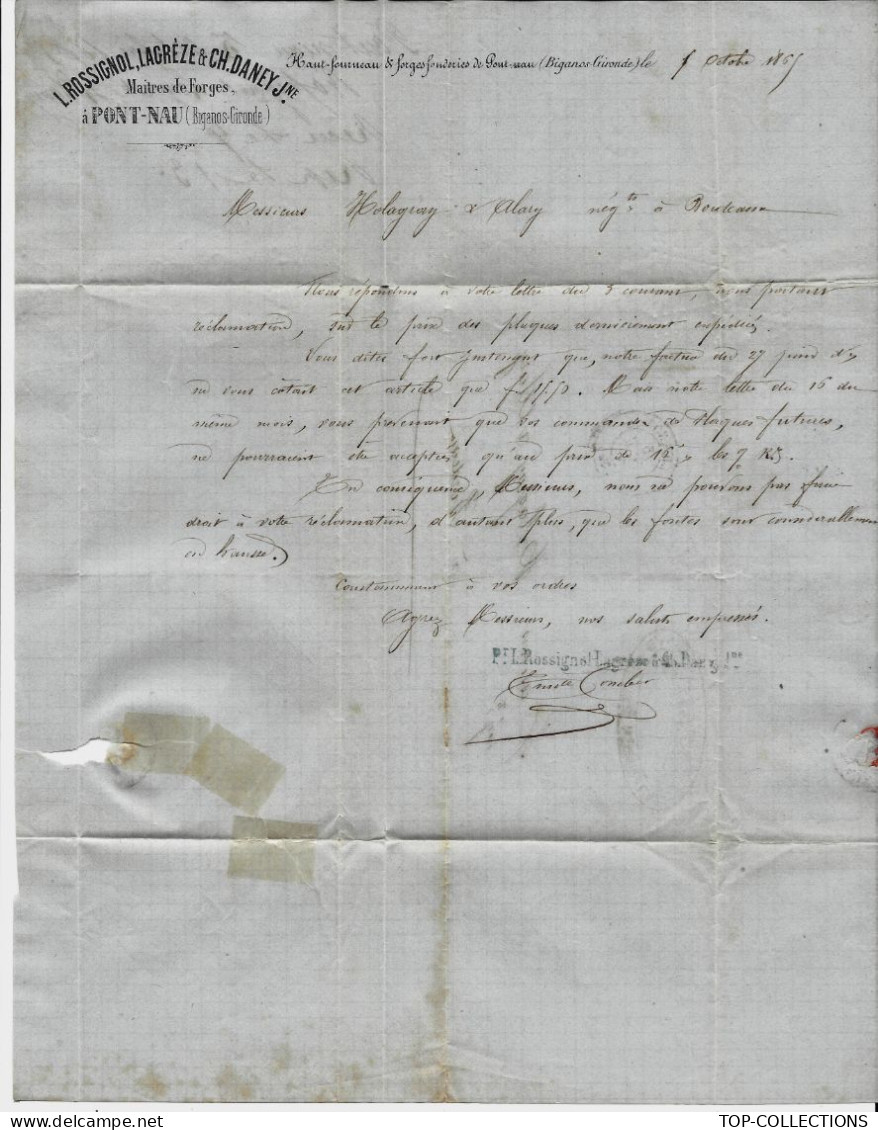 L. ROSSIGNOL, LAGRÈZE & CH. DANEY JNE
Maîtres de Forges,
à PONT-NAU (Biganos-Gironde)
Haut-fourneau & forges fonderies de Pont-nau (Biganos-Gironde) le octobre 1865
Messieurs Holagray & Alary négts à Bordeaux
Nous répondons à votre lettre du 3 courant, nous portant
réclamation, sur le prix des plaques dernièrement expédiées.
Vous dites fort justement que, notre facture du 27 juin
ne vous cotait cet article que f. 15.50. Mais notre lettre du 16 du
même mois, vous prévenait que vos commandes de Plaques futures,
ne pourraient être acceptées qu'au prix de les % K.
En conséquence, Messieurs, nous ne pouvons pas faire
droit à votre réclamation, d'autant plus, que les fontes sont considérablement
en hausse.
Constamment à vos ordres
Agréez Messieurs, nos saluts empressés.
Pr. L. Rossignol-Lagrèze & Ch. Daney Jne
TOP-COLLECTIONS